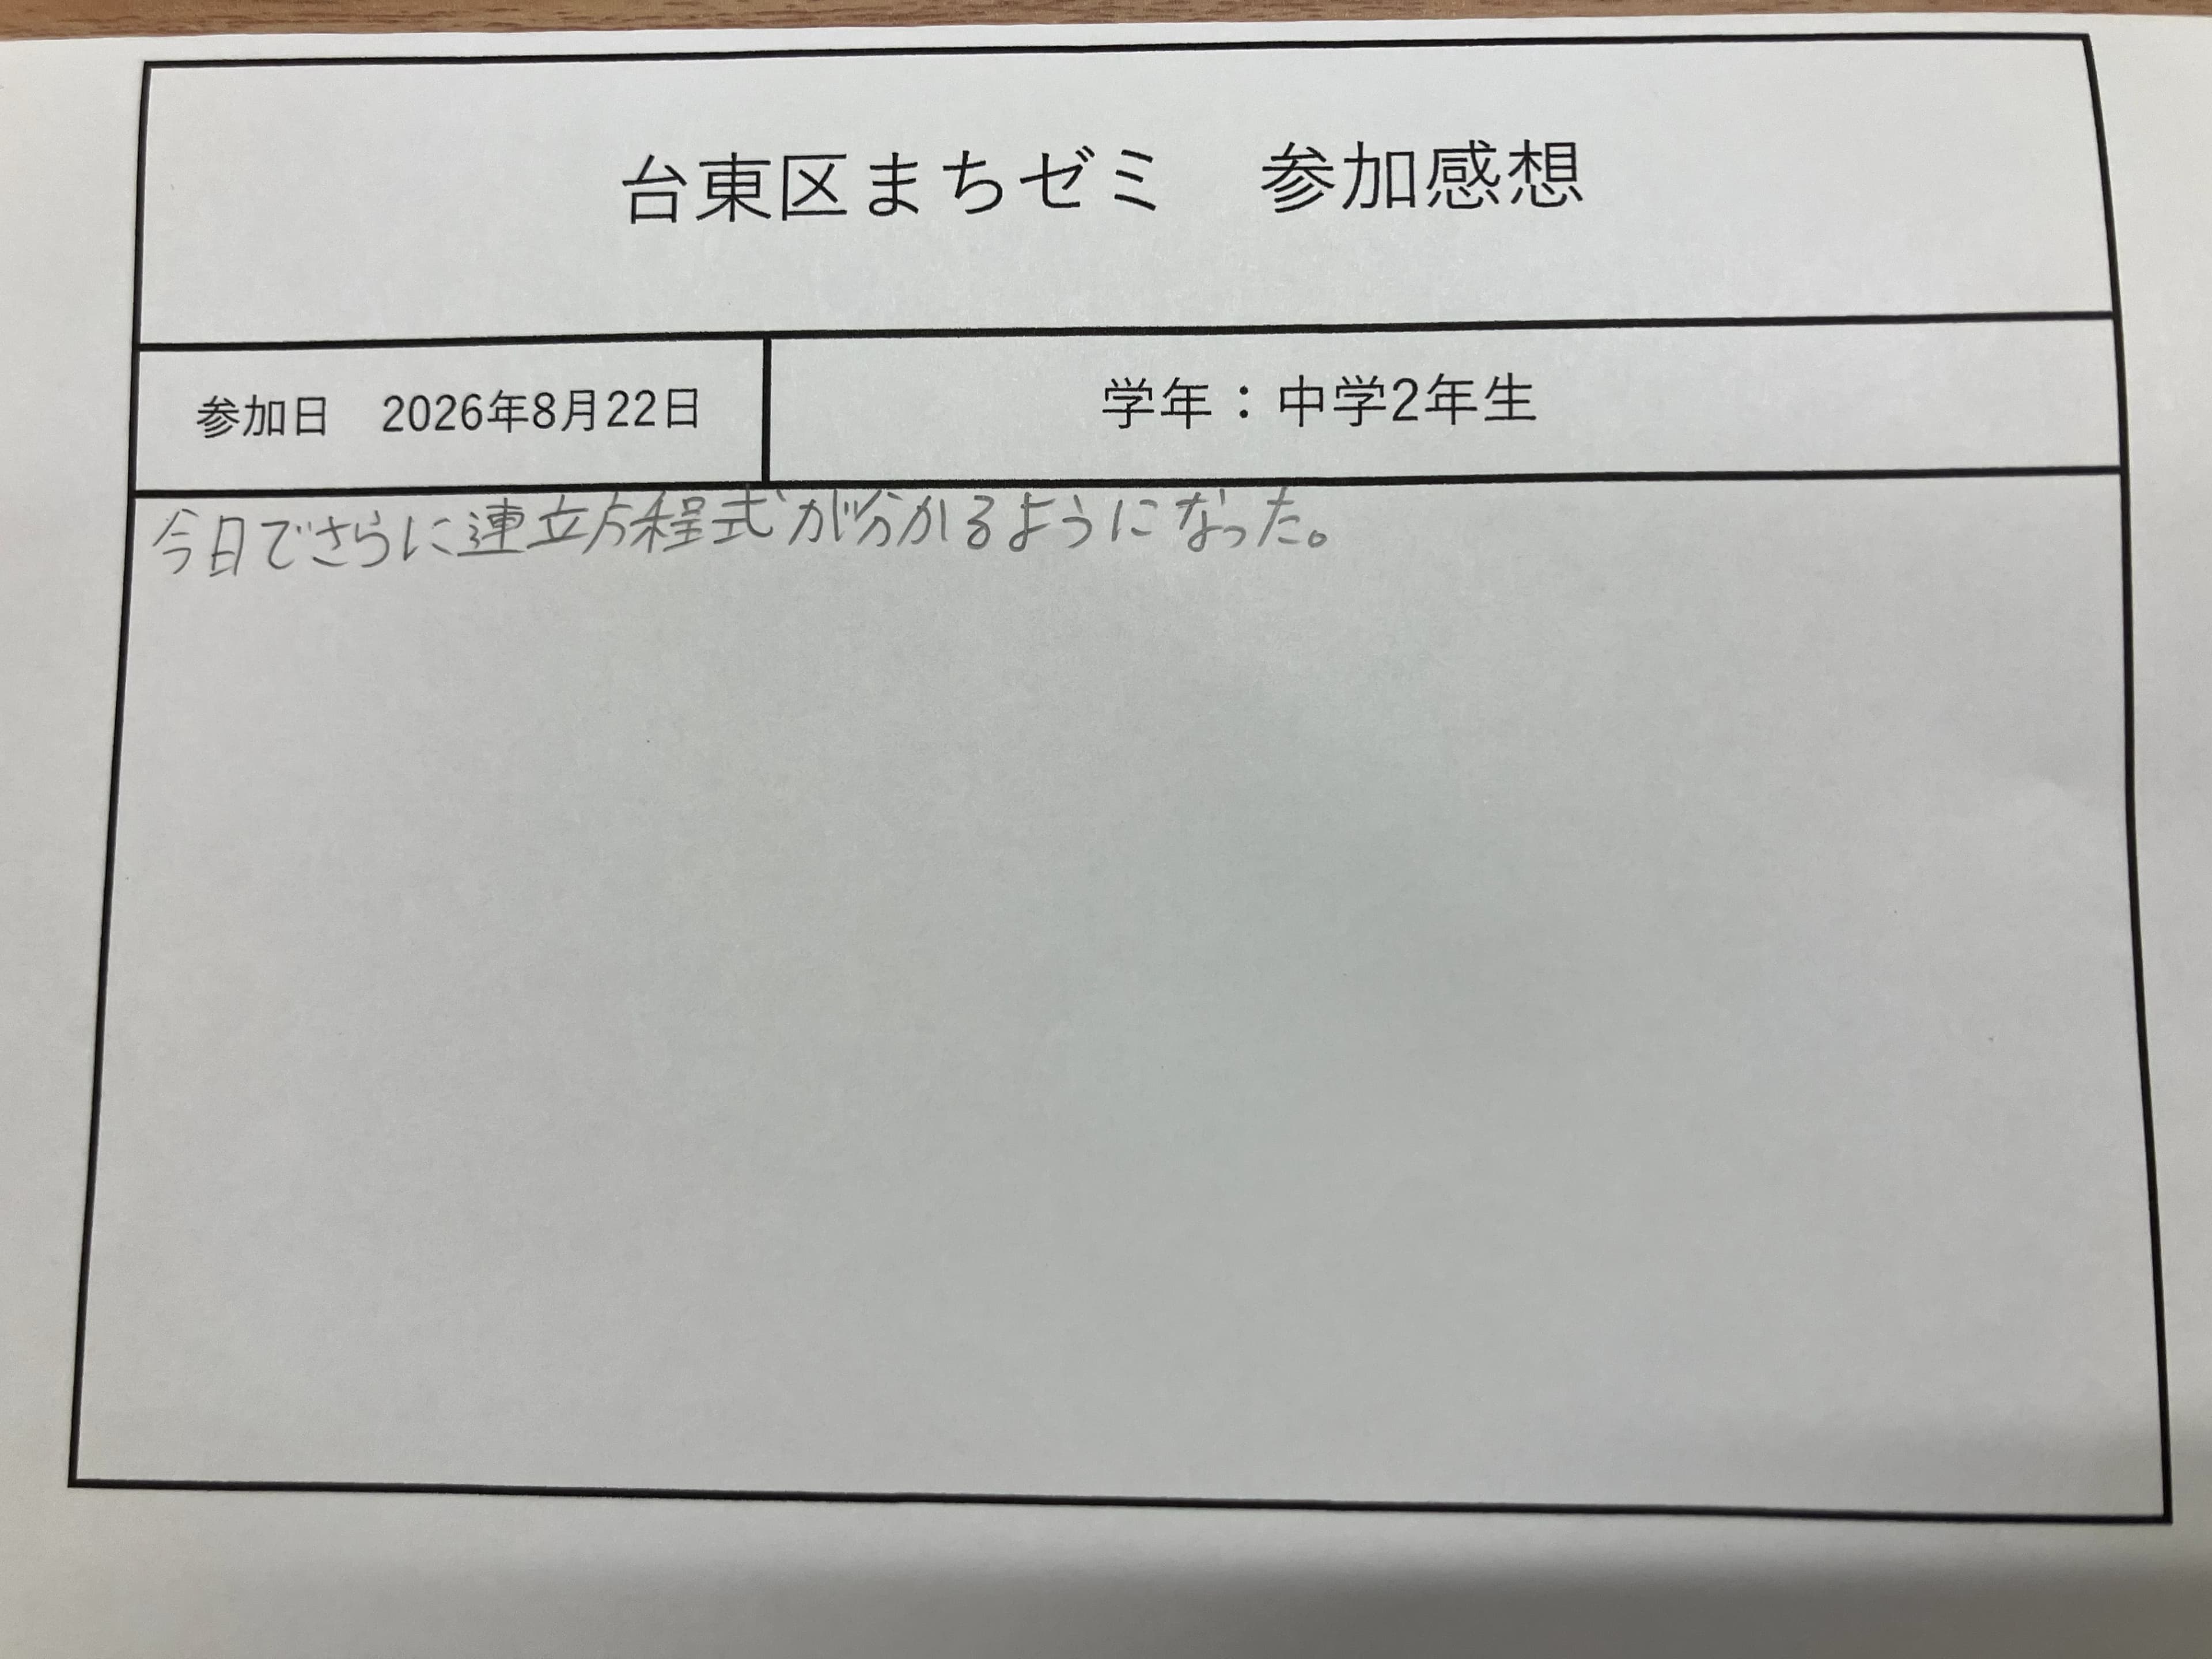 台東区まちゼミ　参加感想
参加日　2026年8月22日
学年：中学2年生
今日でさらに連立方程式が分かるようになった。